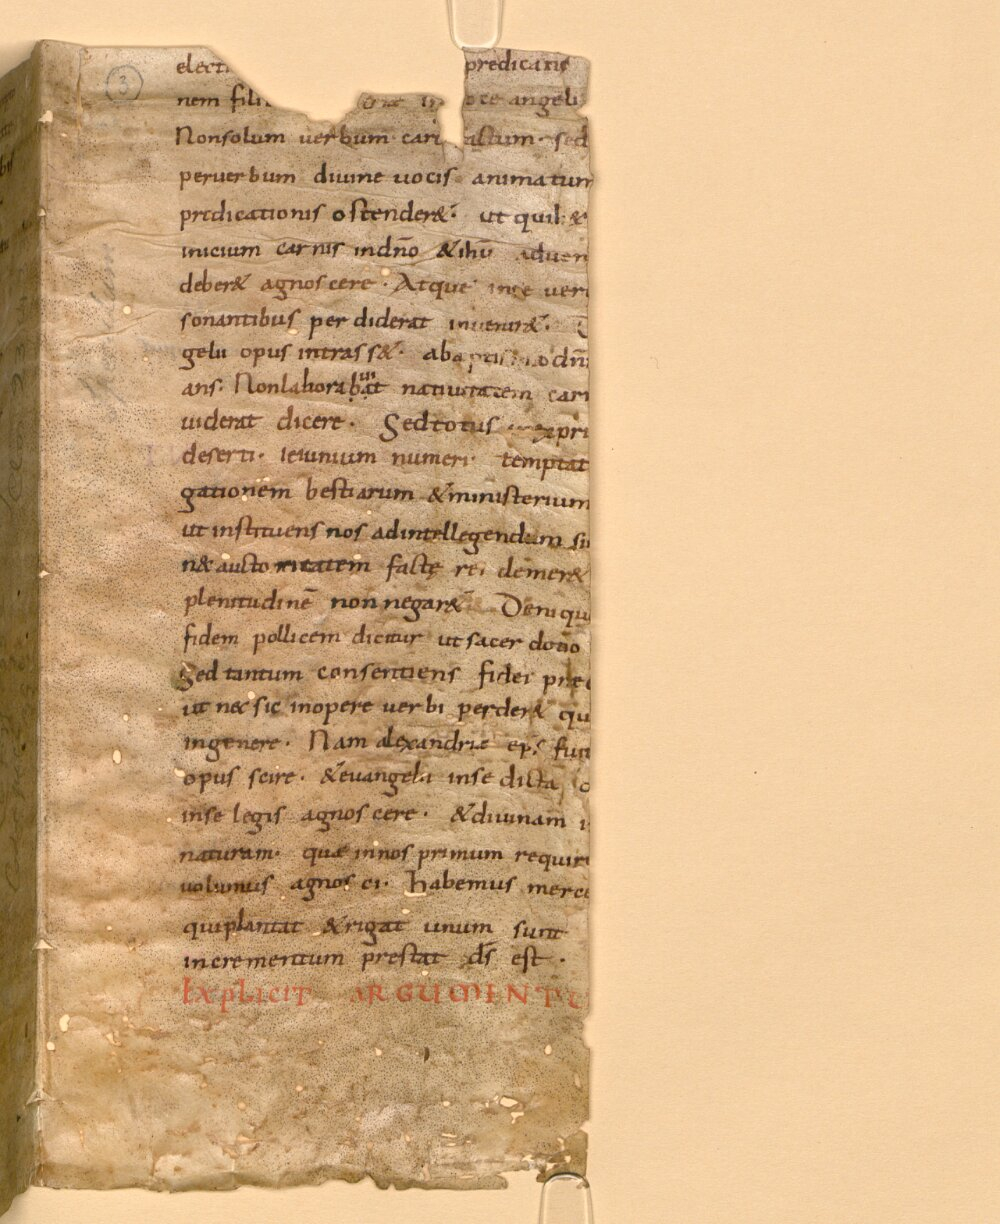 3
electi predicatis
nem filii in uoce angeli
Nonsolum uerbum caro factum sed
peruerbum diuine uocis animatum
predicationis ostender&. ut quil &
inicium carnis indño & ihū aduen
deber& agnoscere. Atque inse uer
sonantibus perdiderat inuenir&.
gelii opus intrass&. abaptismo dñi
ans. Nonlaborabat natiuitatem carn
us
uiderat dicere. Sed totus expri
deserti. ieiunium numeri. temptat
gationem bestiarum & ministerium
ut instituens nos adintellegendum si
n& auctoritatem factę rei demer&
plenitudinē non negar& Deniqu
fidem pollicem dicitur ut sacerdotio
Sed tantum consentiens fidei pre
ut nec sic inopere uerbi perder& qu
ingenere. Nam alexandrie eps fui
opus scire. & euangelii inse dicta
inse legis agnoscere. & diuinam
naturam. quæ innos primum requir
uolumus agnosci. habemus merce
quiplantat & rigat unum sunt
incrementum prestat ds̄ est.
EXPLICIT ARGUMENTU